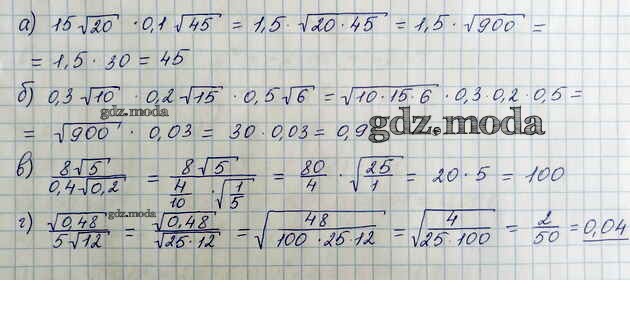 а) 15√20 · 0,1√45 = 1,5 · √20·45 = 1,5 · √900 =
= 1,5 · 30 = 45
б) 0,3√10 · 0,2√15 · 0,5√6 = √10·15·6 · 0,3·0,2·0,5 =
gdz.moda
= √900 · 0,03 = 30·0,03 = 0,9
gdz.moda
в) 8√5 / 0,4√0,2 = 8√5 / 4/10 · √1/5 = 80/4 · √25/1 = 20·5 = 100
gdz.moda
г) √0,48 / 5√12 = √0,48 / √25·12 = √48 / 100·25·12 = √4 / 25·100 = 2/50 = 0,04